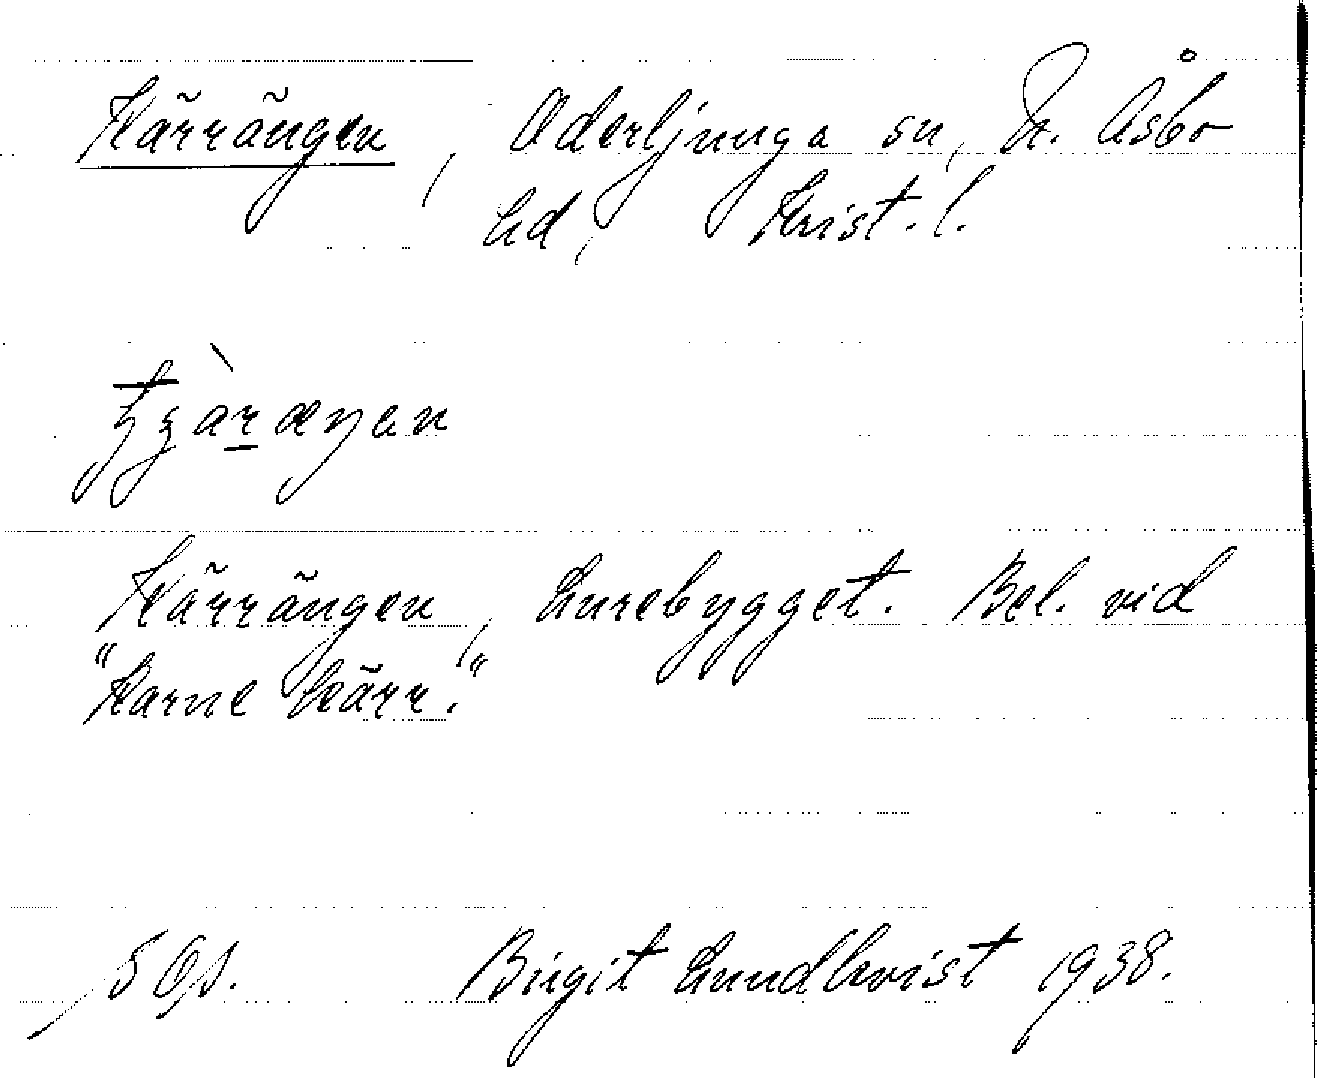 Kärrängen, Oderljunga sn, N. Åsbo
hd, Krist. l.
Kärrängen, Lurebygget. Bel. vid
"Karne kärr."
Birgit Lundkvist 1938.